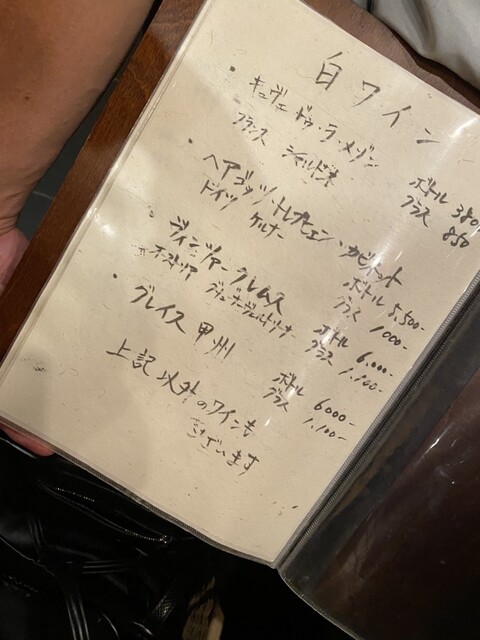 白ワイン
・キュヴェ ドゥ・ラ・メゾン
フランス シャルドネ ボトル 380
グラス 850
・ヘアゴッツ・トレプヒェン・カビネット
ドイツ ケルナー ボトル 5,500-
グラス 1000-
・ヴィンツァー クレムス
オーストリア グリューナーヴェルトリーナー ボトル 6,000-
グラス 1,100-
・グレイス 甲州
ボトル 6000-
グラス 1,100-
上記以外のワインも
ございます